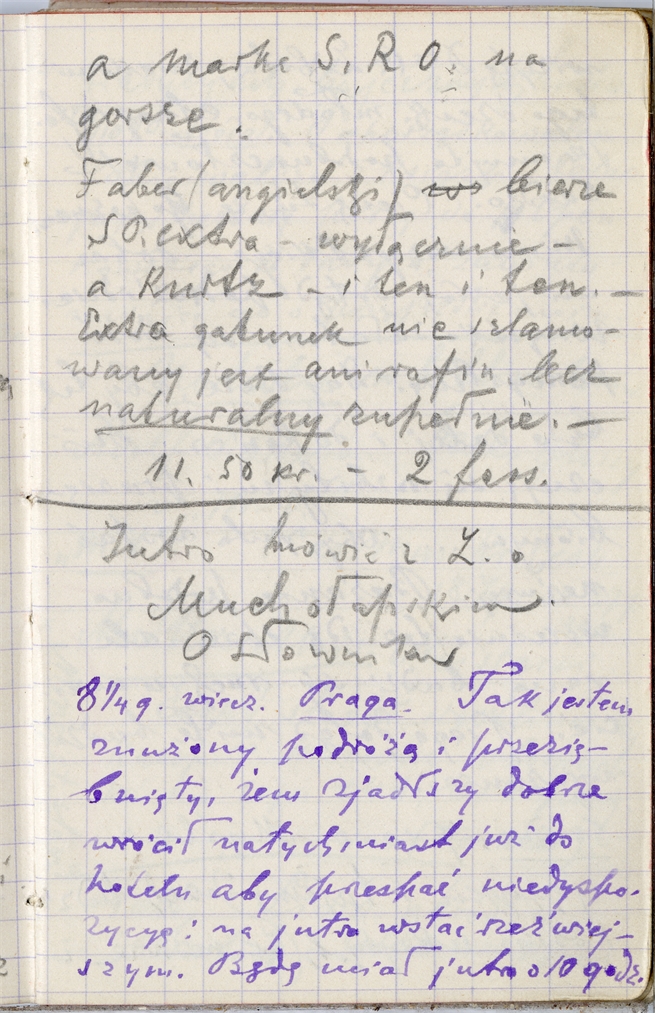 a marke S. R O. na
gorsze.
Faber (angielski) bierze
S P. extra - wyłącznie -
a Kurtz - i ten i ten. -
Extra gatunek nie szlamo-
wany jest ani rafin. lecz
naturalny zupełnie. -
11. 50 kr. - 2 fass.
Jutro mówić z Z. o
Muchołapskim.
O Słownik
8 1/4 g. wiecz. Praga. Tak jestem
znużony podróżą i przezię-
bnięty, żem zjadłszy dobrze
wrócił natychmiast już do
hotelu aby przespać niedyspo-
zycyę i na jutro wstać rzeźwiej-
szym. Będę miał jutro o 10 godz.